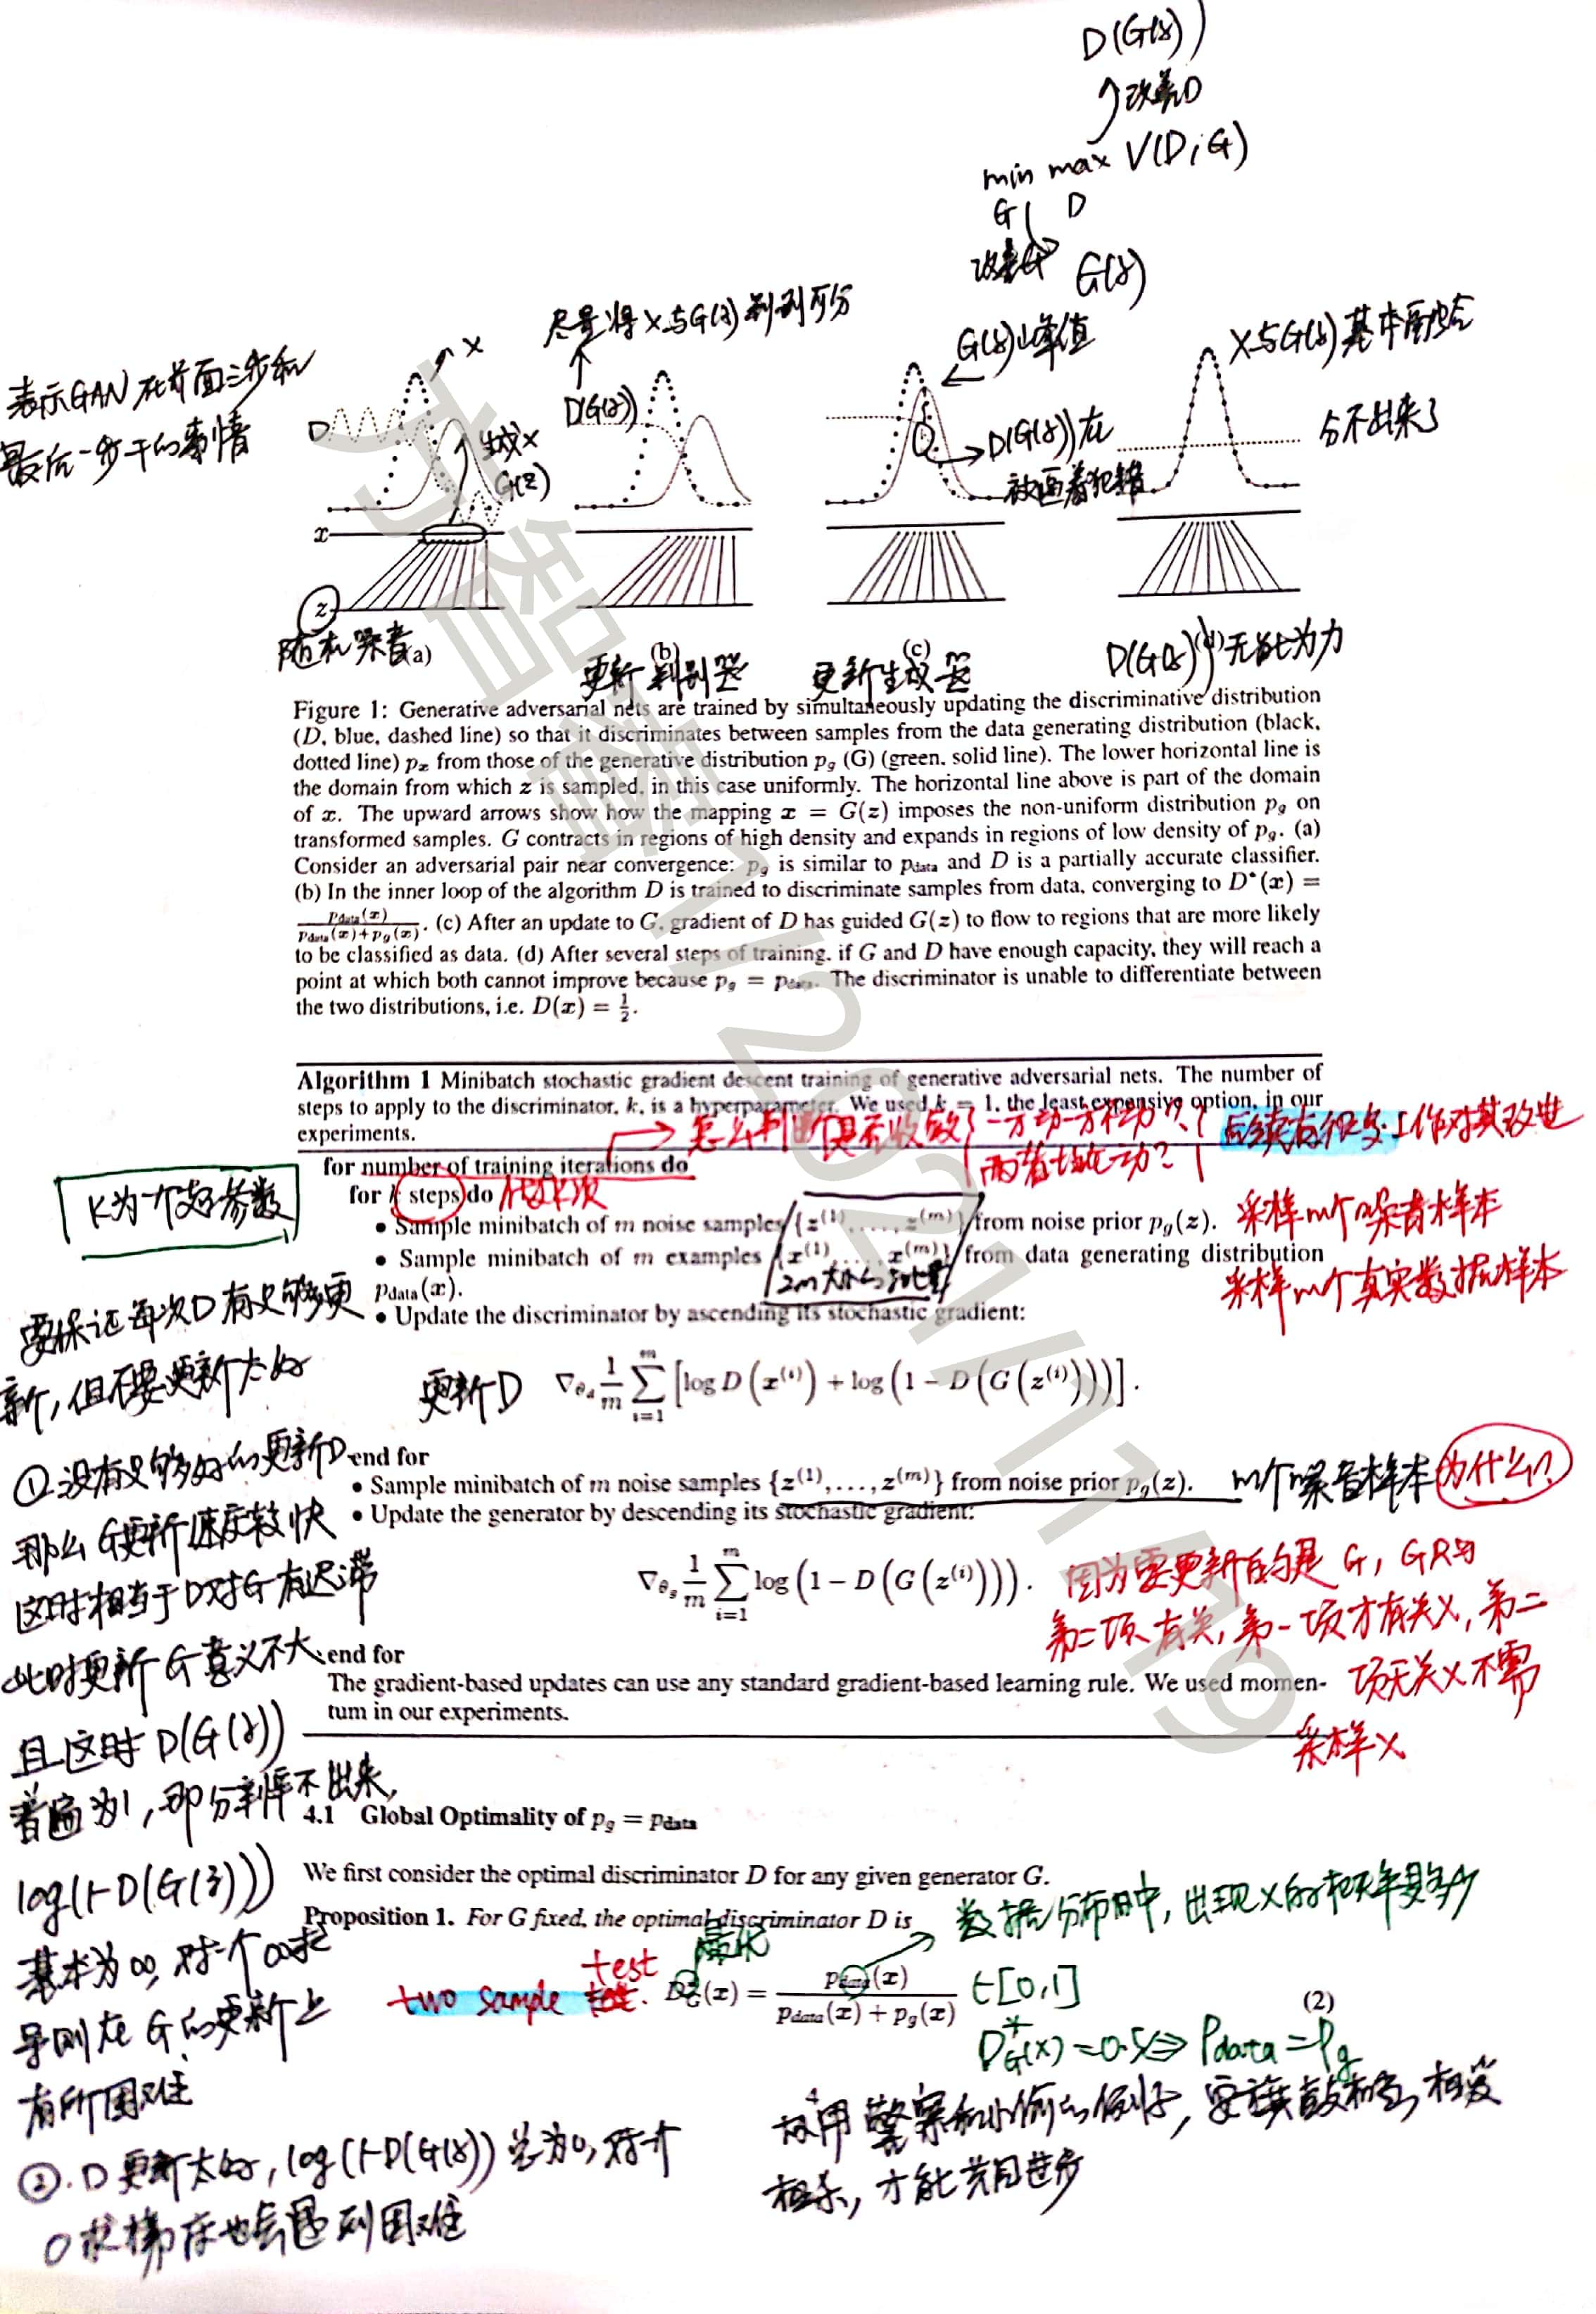 D(G(z))
改善D
min max V(D,G)
G D
改善G G(z)
尽量将X与G(z)判别可分
G(z)山峰值
X与G(z)基本融合
分不出来了
表示GAN在前面三步和
最后一步干的事情
X
D
生成X
G(z)
D(G(z))
D(G(z))在
被逼着犯错
x
z
随机噪音(a)
(b)
更新判别器
(c)
更新生成器
D(G(z))(d)无能为力
Figure 1: Generative adversarial nets are trained by simultaneously updating the discriminative distribution
(D, blue, dashed line) so that it discriminates between samples from the data generating distribution (black,
dotted line) pₓ from those of the generative distribution p_g (G) (green, solid line). The lower horizontal line is
the domain from which z is sampled, in this case uniformly. The horizontal line above is part of the domain
of x. The upward arrows show how the mapping x = G(z) imposes the non-uniform distribution p_g on
transformed samples. G contracts in regions of high density and expands in regions of low density of p_g. (a)
Consider an adversarial pair near convergence: p_g is similar to p_data and D is a partially accurate classifier.
(b) In the inner loop of the algorithm D is trained to discriminate samples from data, converging to D*(x) =
p_data(x) / (p_data(x)+p_g(x)). (c) After an update to G, gradient of D has guided G(z) to flow to regions that are more likely
to be classified as data. (d) After several steps of training, if G and D have enough capacity, they will reach a
point at which both cannot improve because p_g = p_data. The discriminator is unable to differentiate between
the two distributions, i.e. D(x) = 1/2.
Algorithm 1 Minibatch stochastic gradient descent training of generative adversarial nets. The number of
steps to apply to the discriminator, k, is a hyperparameter. We used k = 1, the least expensive option, in our
experiments.
怎么判断是否收敛?一方动一方不动??
两者都在动?
后续有很多工作对其改进
for number of training iterations do
K为一个超参数
for k steps do 代K次
• Sample minibatch of m noise samples {z⁽¹⁾, . . . , z⁽ᵐ⁾} from noise prior p_g(z). 采样m个噪音样本
• Sample minibatch of m examples {x⁽¹⁾, . . . , x⁽ᵐ⁾} from data generating distribution
p_data(x). 2m大小的批量 采样m个真实数据样本
• Update the discriminator by ascending its stochastic gradient:
更新D ∇_θd 1/m Σ_{i=1}^{m} [log D(x⁽ⁱ⁾) + log(1 − D(G(z⁽ⁱ⁾)))].
end for
• Sample minibatch of m noise samples {z⁽¹⁾, . . . , z⁽ᵐ⁾} from noise prior p_g(z). m个噪音样本 为什么?
• Update the generator by descending its stochastic gradient:
∇_θg 1/m Σ_{i=1}^{m} log(1 − D(G(z⁽ⁱ⁾))).
因为需更新的是G,G只与
第二项有关,第一项才有关x,第二
项无关x不需
采样x
end for
The gradient-based updates can use any standard gradient-based learning rule. We used momen-
tum in our experiments.
要保证每次D有足够更
新,但不要更新太好
①没有足够好的更新D
那么G更新速度较快
这时相当于D对G有迟滞
此时更新G意义不大
且这时D(G(z))
普遍为1,即分辨不出来,
log(1-D(G(z)))
基本为∞,对一个∞求
导则在G的更新上
有所困难
②.D更新太好,log(1-D(G(z)))总为0,对一个
0求梯度也会遇到困难
4.1 Global Optimality of p_g = p_data
We first consider the optimal discriminator D for any given generator G.
Proposition 1. For G fixed, the optimal discriminator D is
最优
数据分布中,出现x的概率是多少
two sample test.
D*_G(x) = p_data(x) / (p_data(x) + p_g(x)) ∈[0,1]
(2)
D*_G(x)=0.5⇒ Pdata=Pg
故用警察和小偷的例子,要旗鼓相当,相爱
相杀,才能共同进步
2021/11/19